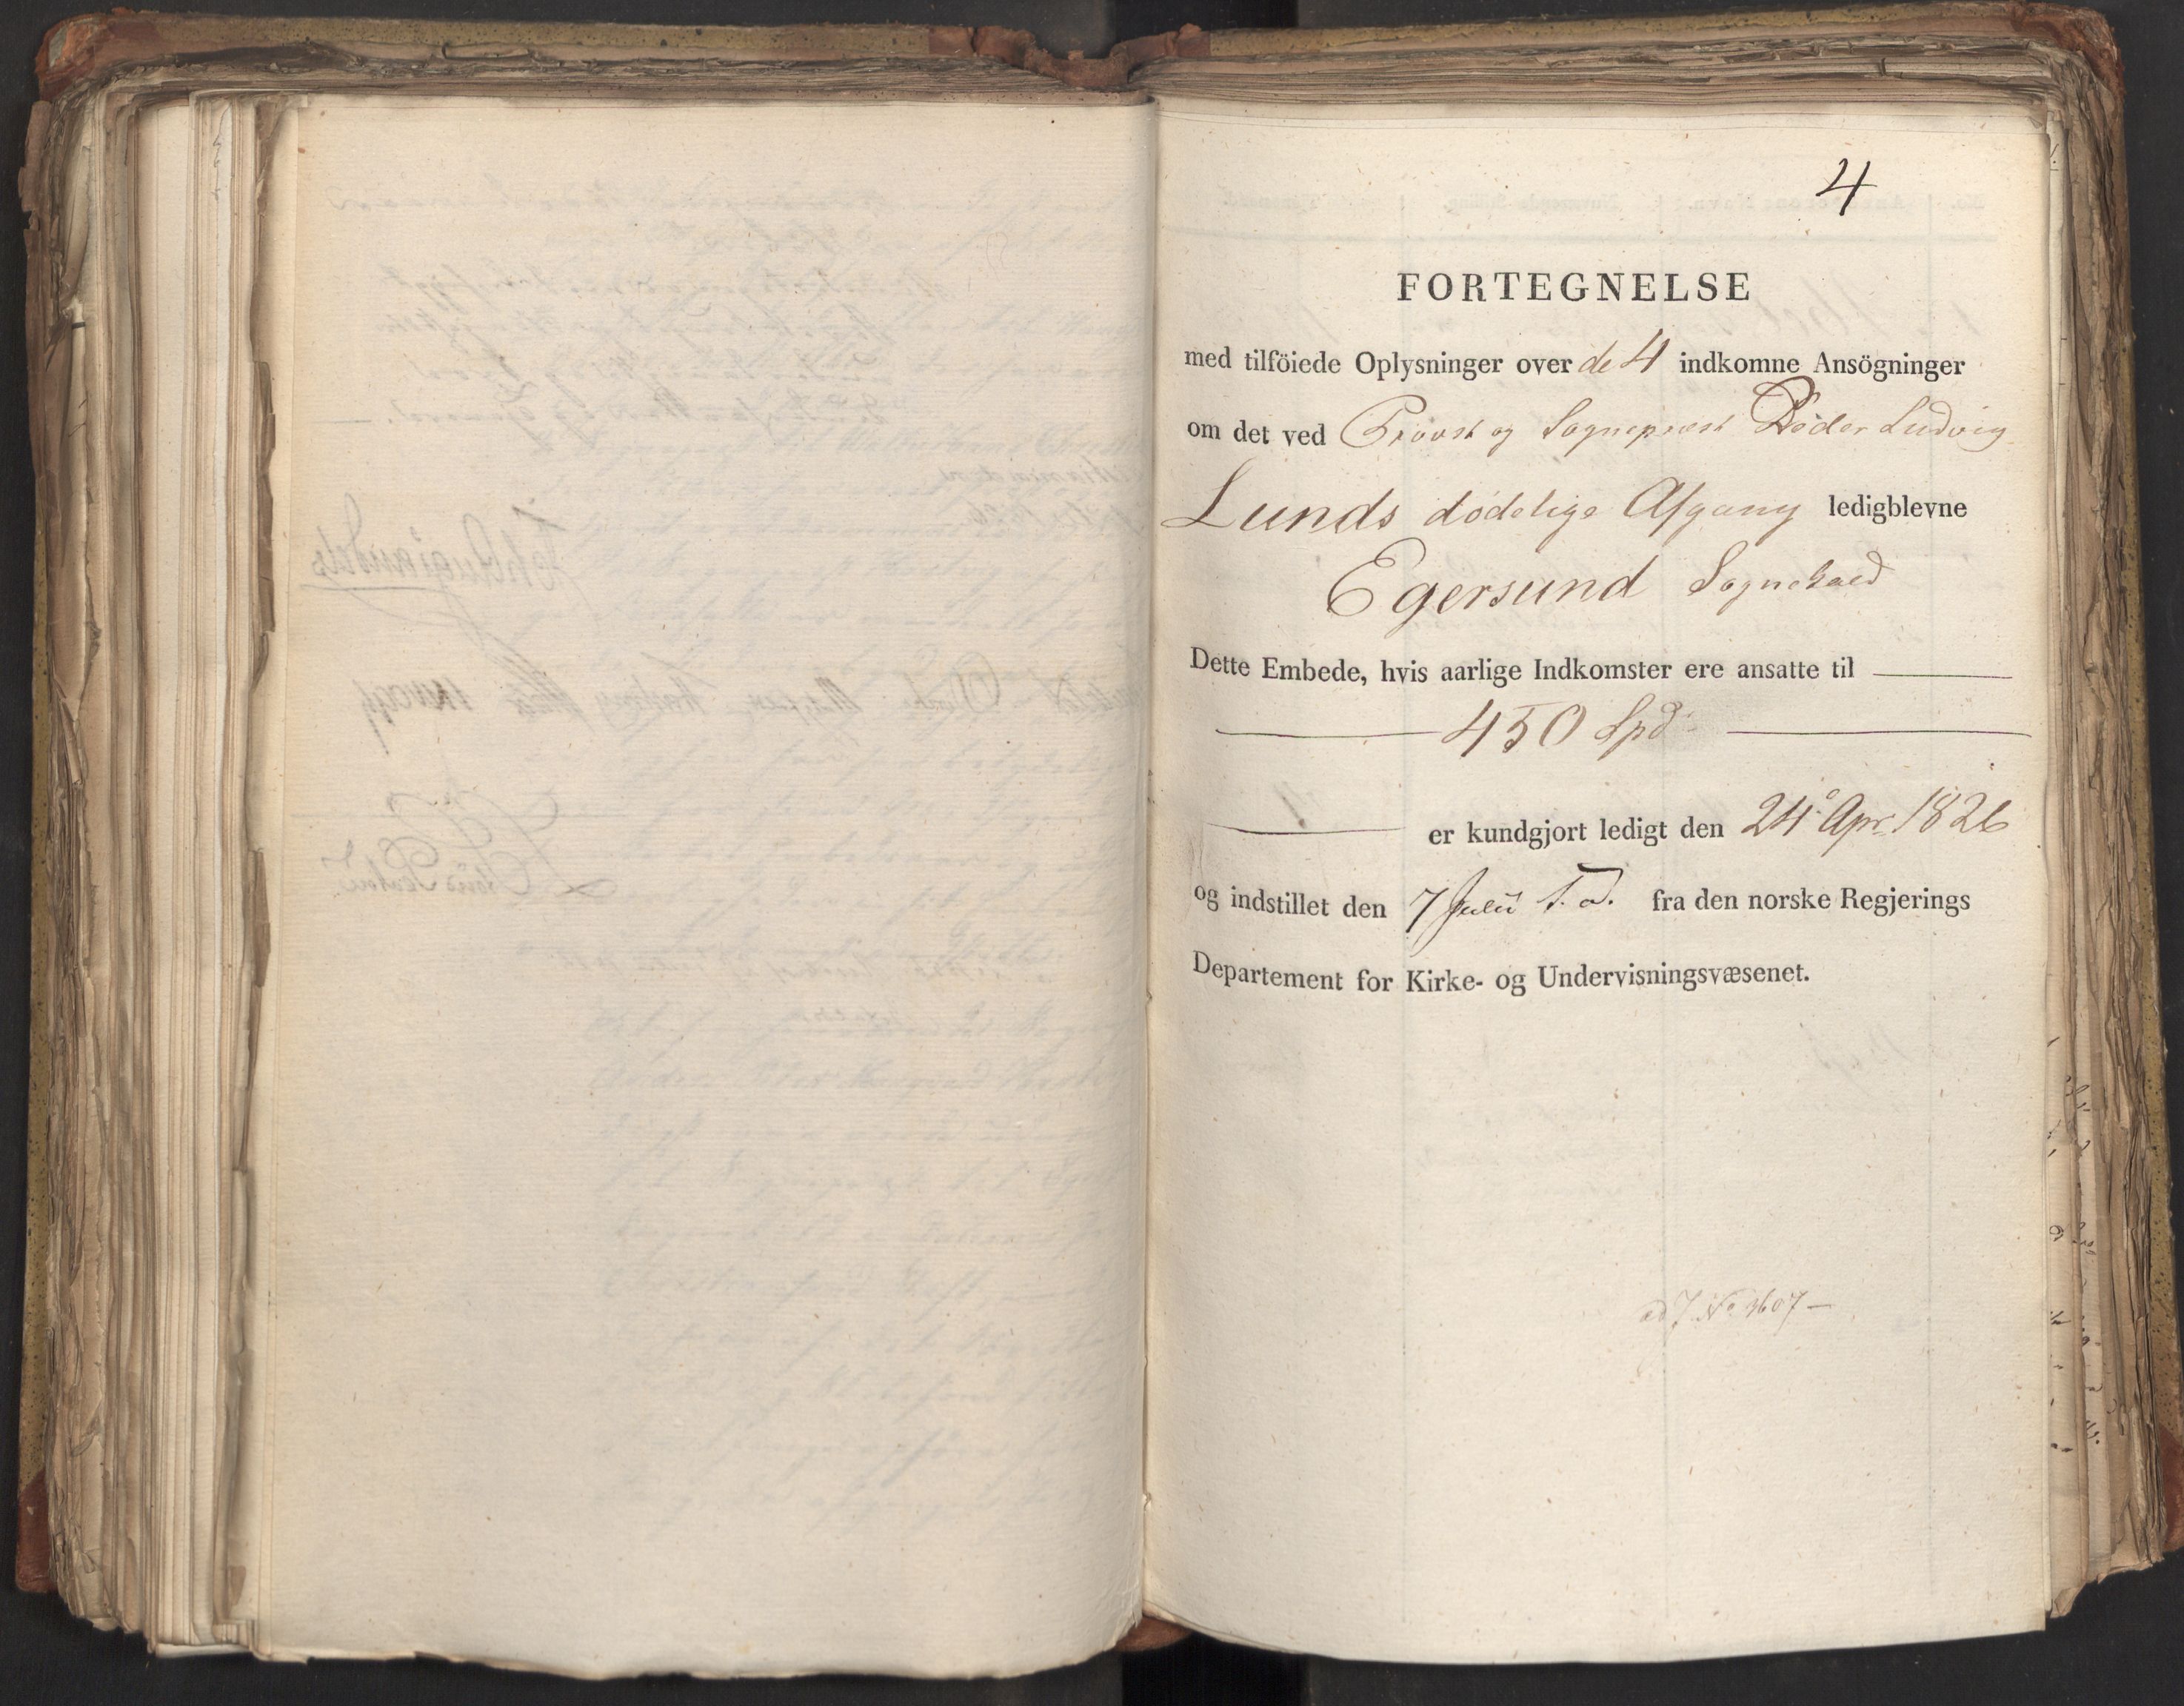 4
FORTEGNELSE
med tilföiede Oplysninger over de 4 indkomne Ansögninger
om det ved Provst og Sognepræst Peder Ludvig
Lunds dødelige Afgang ledigblevne
Egersund Sognekald
Dette Embede, hvis aarlige Indkomster ere ansatte til
450 Spd
er kundgjort ledigt den 24 Apr. 1826
og indstillet den 7 Julii s. A. fra den norske Regjerings
Departement for Kirke- og Undervisningsvæsenet.
ad J. No 1607 -